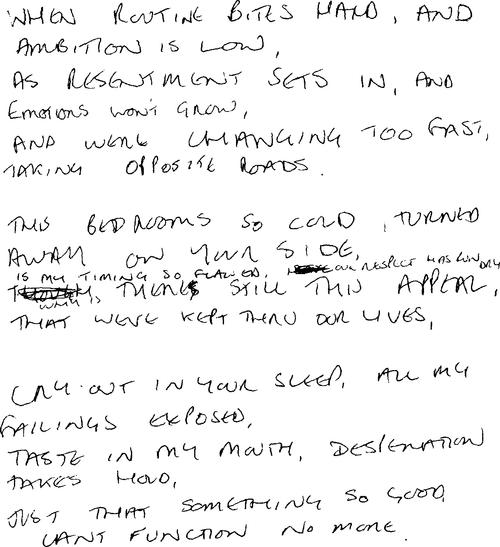 WHEN ROUTINE BITES HARD, AND
AMBITION IS LOW,
AS RESENTMENT SETS IN, AND
EMOTIONS WON'T GROW,
AND WERE CHANGING TOO FAST,
TAKING OPPOSITE ROADS.
THIS BEDROOMS SO COLD, TURNED
AWAY ON YOUR SIDE,
IS MY TIMING SO FLAWED, OUR RESPECT HAS RUN DRY
WHY IS
THERES STILL THIS APPEAL,
THAT WEVE KEPT THRU OUR LIVES,
CRY OUT IN YOUR SLEEP, ALL MY
FAILINGS EXPOSED,
TASTE IN MY MOUTH, DESPERATION
TAKES HOLD,
JUST THAT SOMETHING SO GOOD,
CANT FUNCTION NO MORE.